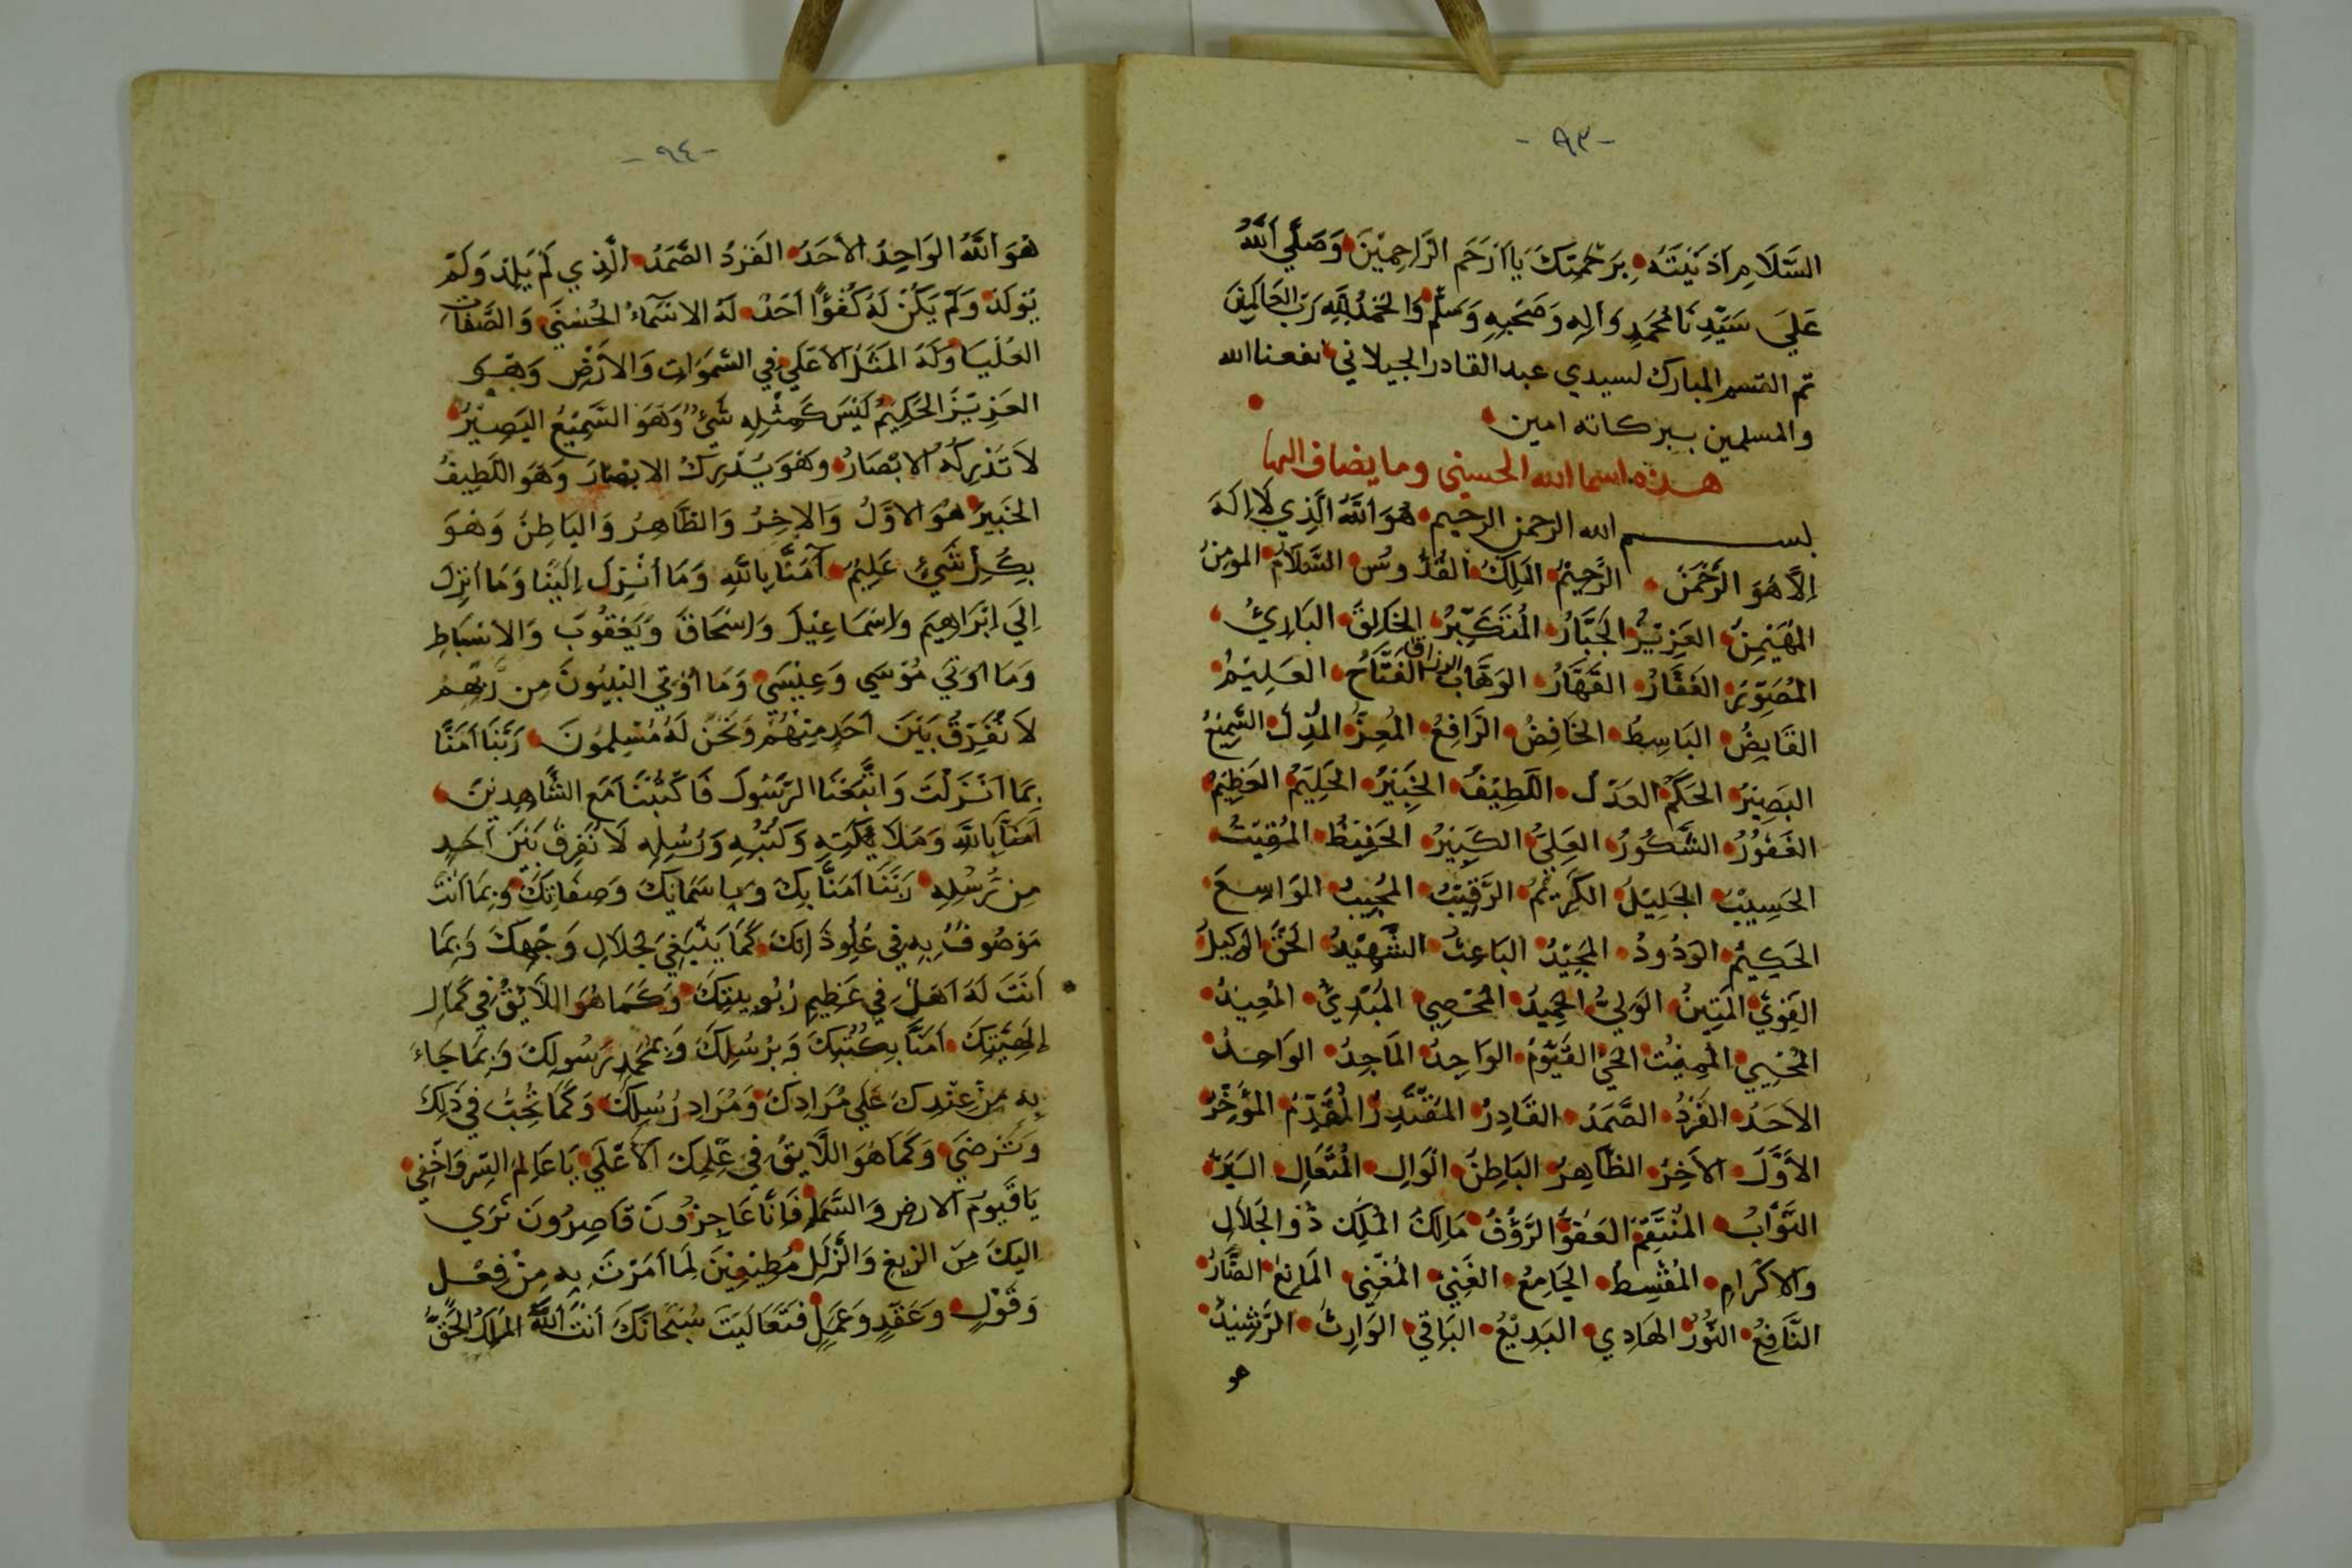 -٩٣-
السَّلَامِ اَذَنَبْتَهُ بِرَحْمَتِكَ يَا اَرْحَمَ الرَّاحِمِيْنَ وَصَلَّي اللَّهُ
عَلَيَ سَيِّدِنَا مُحَمَدٍ وَالِهِ وَصَحْبِهِ وَسَلَّمْ وَالحَمْدُ لِلَّهِ رَبِّ العَالَمِيْنَ
تم القسم المبارك لسيدي عبد القادر الجيلاني نفعنا الله
والمسلمين ببركاته امين
هذه اسما الله الحسيني وما يضاف اليها
بسم الله الرحمن الرحيم هُوَ اللَّهُ الَّذِي لَا اِلَهَ
اِلاَّ هُوَ الرَّحْمَنُ الرَّحِيْمُ المَلِكُ القُدُّوسُ السَّلَامُ المومِنُ
المُهَيْمِنُ العَزِيْزُ الجَبَّارُ المُتَكَبِّرُ الخَالِقُ البَارِئُ
المُصَوِّرُ الغَفَّارُ القَهَّارُ الوَهَّابُ الرزاق الفَتَّاحُ العَلِيْمُ
القَابِضُ البَاسِطُ الخَافِضُ الرَّافِعُ المُعِزُّ المُذِلُّ السَّمِيْعُ
البَصِيْرُ الحَكَمُ العَدْلُ اللَّطِيْفُ الخَبِيْرُ الحَلِيْمُ العَظِيْمُ
الغَفُوْرُ الشَّكُورُ العَلِيُّ الكَبِيْرُ الحَفِيْظُ المُقِيْتُ
الحَسِيْبُ الجَلِيْلُ الكَرِيْمُ الرَّقِيْبُ المُجِيبُ الوَاسِعَ
الحَكِيْمُ الوَدُودُ المَجِيْدُ البَاعِثُ الشَّهِيْدُ الحَقُّ الوَكِيلُ
القَوِيُّ المَتِيْنُ الوَلِيُّ الحَمِيْدُ المُحْصِي المُبْدِئُ المُعِيْدُ
المُحْيِي المُمِيْتُ الحَيُّ القَيُّوْمُ الوَاجِدُ المَاجِدُ الوَاحِدُ
الاَحَدُ الفَرْدُ الصَّمَدُ القَادِرُ المُقْتَدِرُ المُقَدِّمُ المُؤَخِّرُ
الاَوَّلُ الاَخِرُ الظَّاهِرُ البَاطِنُ الوَالِ المُتَعَالِ البَرُّ
التَّوَّابُ المُنْتَقِمُ العَفُوُّ الرَّؤُفُ مَالِكُ المُلْكِ ذُوالجَلَالِ
وَالاكْرَامِ المُقْسِطُ الجَامِعُ الغَنِيُّ المُغْنِي المَانِعُ الضَّارُّ
النَّافِعُ النُّوْرُ الهَادِي البَدِيْعُ البَاقِي الوَارِثُ الرَّشِيْدُ
هو
-٩٤-
هُوَ اللَّهُ الوَاحِدُ الأَحَدُ الفَرْدُ الصَّمَدُ الَّذِي لَمْ يَلِدْ وَلَمْ
يُوْلَدْ وَلَمْ يَكُنْ لَهُ كُفُوًا اَحَدٌ لَهُ الاسْمَآءُ الحُسْنَيَ وَالصِّفَاتُ
العُلْيَا وَلَهُ المَثَلُ الأَعْلَي فِي السَّمَوَاتِ وَالاَرْضِ وَهُوَ
العَزِيْزُ الحَكِيْمُ لَيْسَ كَمِثْلِهِ شَيْءٌ وَهُوَ السَّمِيْعُ البَصِيْرُ
لاَ تُدْرِكُهُ الاَبْصَارُ وهُوَ يُدْرِكُ الابْصَارَ وَهُوَ اللَّطِيفُ
الخَبِيرُ هُوَ الاوَّلُ وَالاخِرُ وَالظَّاهِرُ وَالبَاطِنُ وَهُوَ
بِكُلِّ شَيْءٍ عَلِيْمٌ آمَنَّا بِاللَّهِ وَمَا اُنْزِلَ اِلَيْنَا وَمَا اُنْزِلَ
اِلَيَ اِبْرَاهِيمَ وَاسْمَاعِيْلَ وَاِسْحَاقَ وَيَعْقُوْبَ وَالاسْبَاطِ
وَمَا اُوتِيَ مُوْسَي وَعِيْسَي وَمَا اُوْتِيَ النَّبِيُونَ مِن رَّبِّهِمْ
لاَ نُفَرِّقُ بَيْنَ اَحَدٍ مِنْهُمْ وَنَحْنُ لَهُ مُسْلِمُونَ رَبَّنَا اَمَنَّا
بِمَا اَنْزَلْتَ وَاتَّبَعْنَا الرَّسُولَ فَاكْتُبْنَا مَعَ الشَّاهِدِيْنَ
اَمَنَّا بِاللَّهِ وَمَلَائِكَتِهِ وَكُتُبِهِ وَرُسُلِهِ لَا نُفَرِقُ بَيْنَ اَحَدٍ
مِن رُّسُلِهِ رَبَّنَا اَمَنَّا بِكَ وَبِاسْمَائِكَ وَصِفَاتِكَ وَبِمَا اَنْتَ
مَوْصُوفٌ بِهِ فِي عُلُوِّ ذَاتِكَ كَمَا يَنْبَغِي لِجَلَالِ وَجْهِكَ وَبِمَا
أَنْتَ لَهُ اَهْلٌ فِي عَظِيمِ رُبُوبِيتِكَ وَكَمَا هُوَ اللَّائِقُ فِي كَمَالِ
اِلهِيَّتِكَ اَمَنَّا بِكُتُبِكَ وَبِرُسُلِكَ وَبِمُحَمَدٍ رَسُولِكَ وَبِمَا جَاءَ
بِهِ مِنْ عِنْدِكَ عَلَي مُرَادِكَ وَمُرَادِ رُسُلِكَ وَكَمَا تُحِبُّ فِي ذَلِكَ
وَتَرْضَي وَكَمَا هُوَ اللَّايقُ فِي عِلْمِكَ الاَعْلَي يَا عَالِمَ السِّرِ وَاَخْفِي
يَا قَيُومَ الارض وَالسَّمَا فَاِنَّا عَاجِزُونَ قَاصِرُونَ نَبْرَي
اليكَ مِنَ الزيغِ وَالزَّلَلِ مُطِيْعِيْنَ لِمَا اَمَرْتَ بِهِ مِنْ فِعْلٍ
وَقَوْلٍ وَعَقْدٍ وَعَمَلٍ فَتَعَالَيْتَ سُبْحَانَكَ اَنْتَ اللَّهُ المَلِكُ الحَقُّ